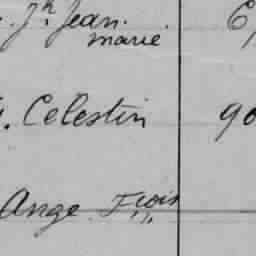 Jh Jean
marie
Celestin 90
Ange Fçois